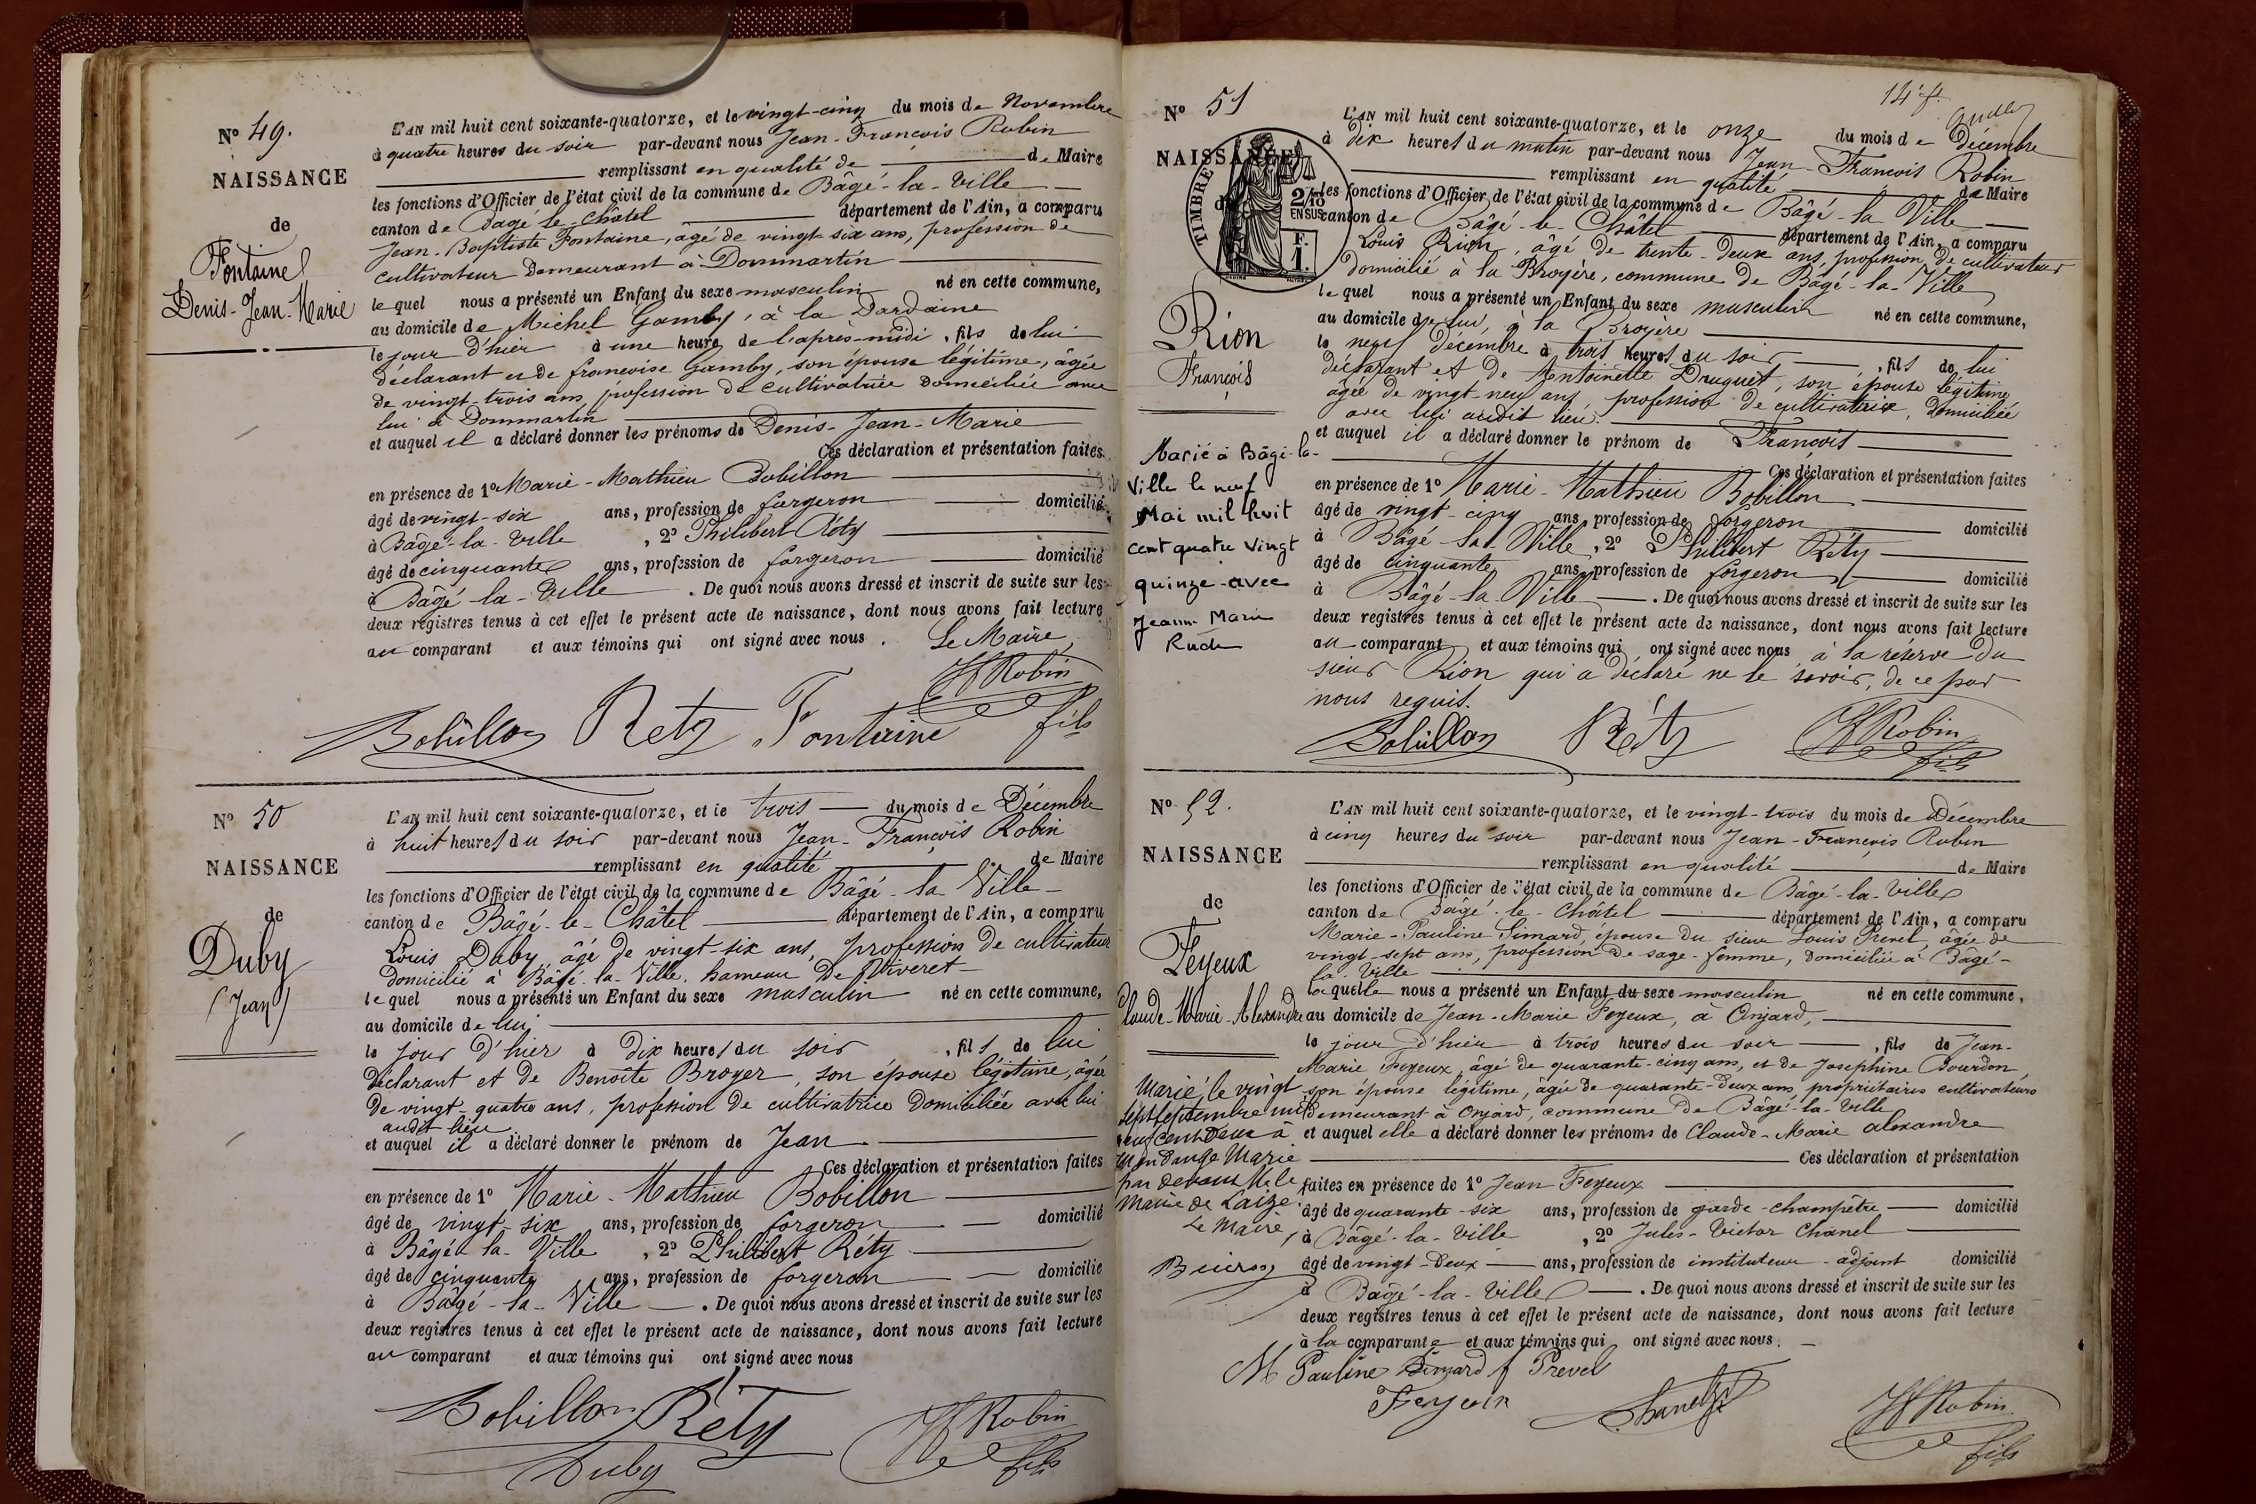 N° 49.
NAISSANCE
de
Fontaine
Denis-Jean-Marie
L'AN mil huit cent soixante-quatorze, et le vingt-cinq du mois de Novembre
à quatre heures du soir par-devant nous Jean-François Robin
remplissant en qualité de de Maire
les fonctions d'Officier de l'état civil de la commune de Bâgé-la-Ville
canton de Bâgé-le-Châtel département de l'Ain, a comparu
Jean-Baptiste Fontaine, âgé de vingt-six ans, profession de
cultivateur demeurant à Dommartin
lequel nous a présenté un Enfant du sexe masculin né en cette commune,
au domicile de Michel Gamby, à la Dardaine
le jour d'hier à une heure de l'après-midi, fils de lui
déclarant et de françoise Gamby, son épouse légitime, âgée
de vingt-trois ans, profession de cultivatrice domiciliée avec
lui à Dommartin
et auquel il a déclaré donner les prénoms de Denis-Jean-Marie
Ces déclaration et présentation faites
en présence de 1° Marie-Mathieu Bobillon
âgé de vingt-six ans, profession de forgeron domicilié
à Bâgé-la-Ville, 2° Philibert Réty
âgé de cinquante ans, profession de forgeron domicilié
à Bâgé-la-Ville. De quoi nous avons dressé et inscrit de suite sur les
deux registres tenus à cet effet le présent acte de naissance, dont nous avons fait lecture
au comparant et aux témoins qui ont signé avec nous. Le Maire,
Bobillon Rety Fontaine JF Robin
fils
N° 50
NAISSANCE
de
Duby
(Jean)
L'AN mil huit cent soixante-quatorze, et le trois du mois de Décembre
à huit heures du soir par-devant nous Jean-François Robin
remplissant en qualité de Maire
les fonctions d'Officier de l'état civil de la commune de Bâgé-la-Ville
canton de Bâgé-le-Châtel département de l'Ain, a comparu
Louis Duby, âgé de vingt-six ans, profession de cultivateur
domicilié à Bâgé-la-Ville, hameau de
lequel nous a présenté un Enfant du sexe masculin né en cette commune,
au domicile de lui
le jour d'hier à dix heures du soir, fils de lui
déclarant et de Benoîte Broyer, son épouse légitime, âgée
de vingt-quatre ans, profession de cultivatrice domiciliée avec lui
audit lieu
et auquel il a déclaré donner le prénom de Jean
Ces déclaration et présentation faites
en présence de 1° Marie-Mathieu Bobillon
âgé de vingt-six ans, profession de forgeron domicilié
à Bâgé-la-Ville, 2° Philibert Réty
âgé de cinquante ans, profession de forgeron domicilié
à Bâgé-la-Ville. De quoi nous avons dressé et inscrit de suite sur les
deux registres tenus à cet effet le présent acte de naissance, dont nous avons fait lecture
au comparant et aux témoins qui ont signé avec nous
Bobillon Réty JF Robin
Duby fils
N° 51
NAISSANCE
de
TIMBRE
2/10
EN SUS
F.
1.
Rion
François
Marié à Bâgé-la-
Ville le neuf
Mai mil huit
cent quatre vingt
quinze avec
Jeanne Marie
Rude
L'AN mil huit cent soixante-quatorze, et le onze du mois de Décembre
à dix heures du matin par-devant nous Jean-François Robin
remplissant en qualité de Maire
les fonctions d'Officier de l'état civil de la commune de Bâgé-la Ville
canton de Bâgé-le-Châtel département de l'Ain, a comparu
Louis Rion, âgé de trente-deux ans, profession de cultivateur
domicilié à la Broyère, commune de Bâgé-la-Ville
lequel nous a présenté un Enfant du sexe masculin né en cette commune,
au domicile de lui, à la Broyère
le neuf décembre à trois heures du soir, fils de lui
déclarant et de Antoinette Druguet, son épouse légitime
âgée de vingt-neuf ans, profession de cultivatrice, domiciliée
avec lui audit lieu.
et auquel il a déclaré donner le prénom de François
Ces déclaration et présentation faites
en présence de 1° Marie-Mathieu Bobillon
âgé de vingt-cinq ans, profession de forgeron domicilié
à Bâgé-la-Ville, 2° Philibert Réty
âgé de cinquante ans, profession de forgeron domicilié
à Bâgé-la-Ville. De quoi nous avons dressé et inscrit de suite sur les
deux registres tenus à cet effet le présent acte de naissance, dont nous avons fait lecture
au comparant et aux témoins qui ont signé avec nous à la réserve du
sieur Rion qui a déclaré ne le savoir, de ce par
nous requis.
Bobillon Réty JF Robin
fils
N° 52.
NAISSANCE
de
Feyeux
Claude-Marie-Alexandre
Marié le vingt
sept septembre mil
neuf cent deux à
par devant M. le
Maire de Laizé
Le Maire,
L'AN mil huit cent soixante-quatorze, et le vingt-trois du mois de Décembre
à cinq heures du soir par-devant nous Jean-François Robin
remplissant en qualité de Maire
les fonctions d'Officier de l'état civil de la commune de Bâgé-la-Ville
canton de Bâgé-le-Châtel département de l'Ain, a comparu
Marie-Pauline Simard, épouse du sieur Louis Prevel, âgée de
vingt-sept ans, profession de sage-femme, domiciliée à Bâgé-
la-Ville
laquelle nous a présenté un Enfant du sexe masculin né en cette commune,
au domicile de Jean-Marie Feyeux, à Onjard,
le jour d'hier à trois heures du soir, fils de Jean-
Marie Feyeux, âgé de quarante-cinq ans, et de Josephine Bourdon,
son épouse légitime, âgée de quarante-deux ans, propriétaires cultivateurs
demeurant à Onjard, commune de Bâgé-la-Ville
et auquel elle a déclaré donner les prénoms de Claude-Marie alexandre
Ces déclaration et présentation
faites en présence de 1° Jean Feyeux
âgé de quarante-six ans, profession de garde-champêtre domicilié
à Bâgé-la-Ville, 2° Jules-Victor Chanel
âgé de vingt-deux ans, profession de instituteur-adjoint domicilié
à Bâgé-la-Ville. De quoi nous avons dressé et inscrit de suite sur les
deux registres tenus à cet effet le présent acte de naissance, dont nous avons fait lecture
à la comparante et aux témoins qui ont signé avec nous.
M Pauline Simard f Prevel
Feyeux Chanel JF Robin
fils